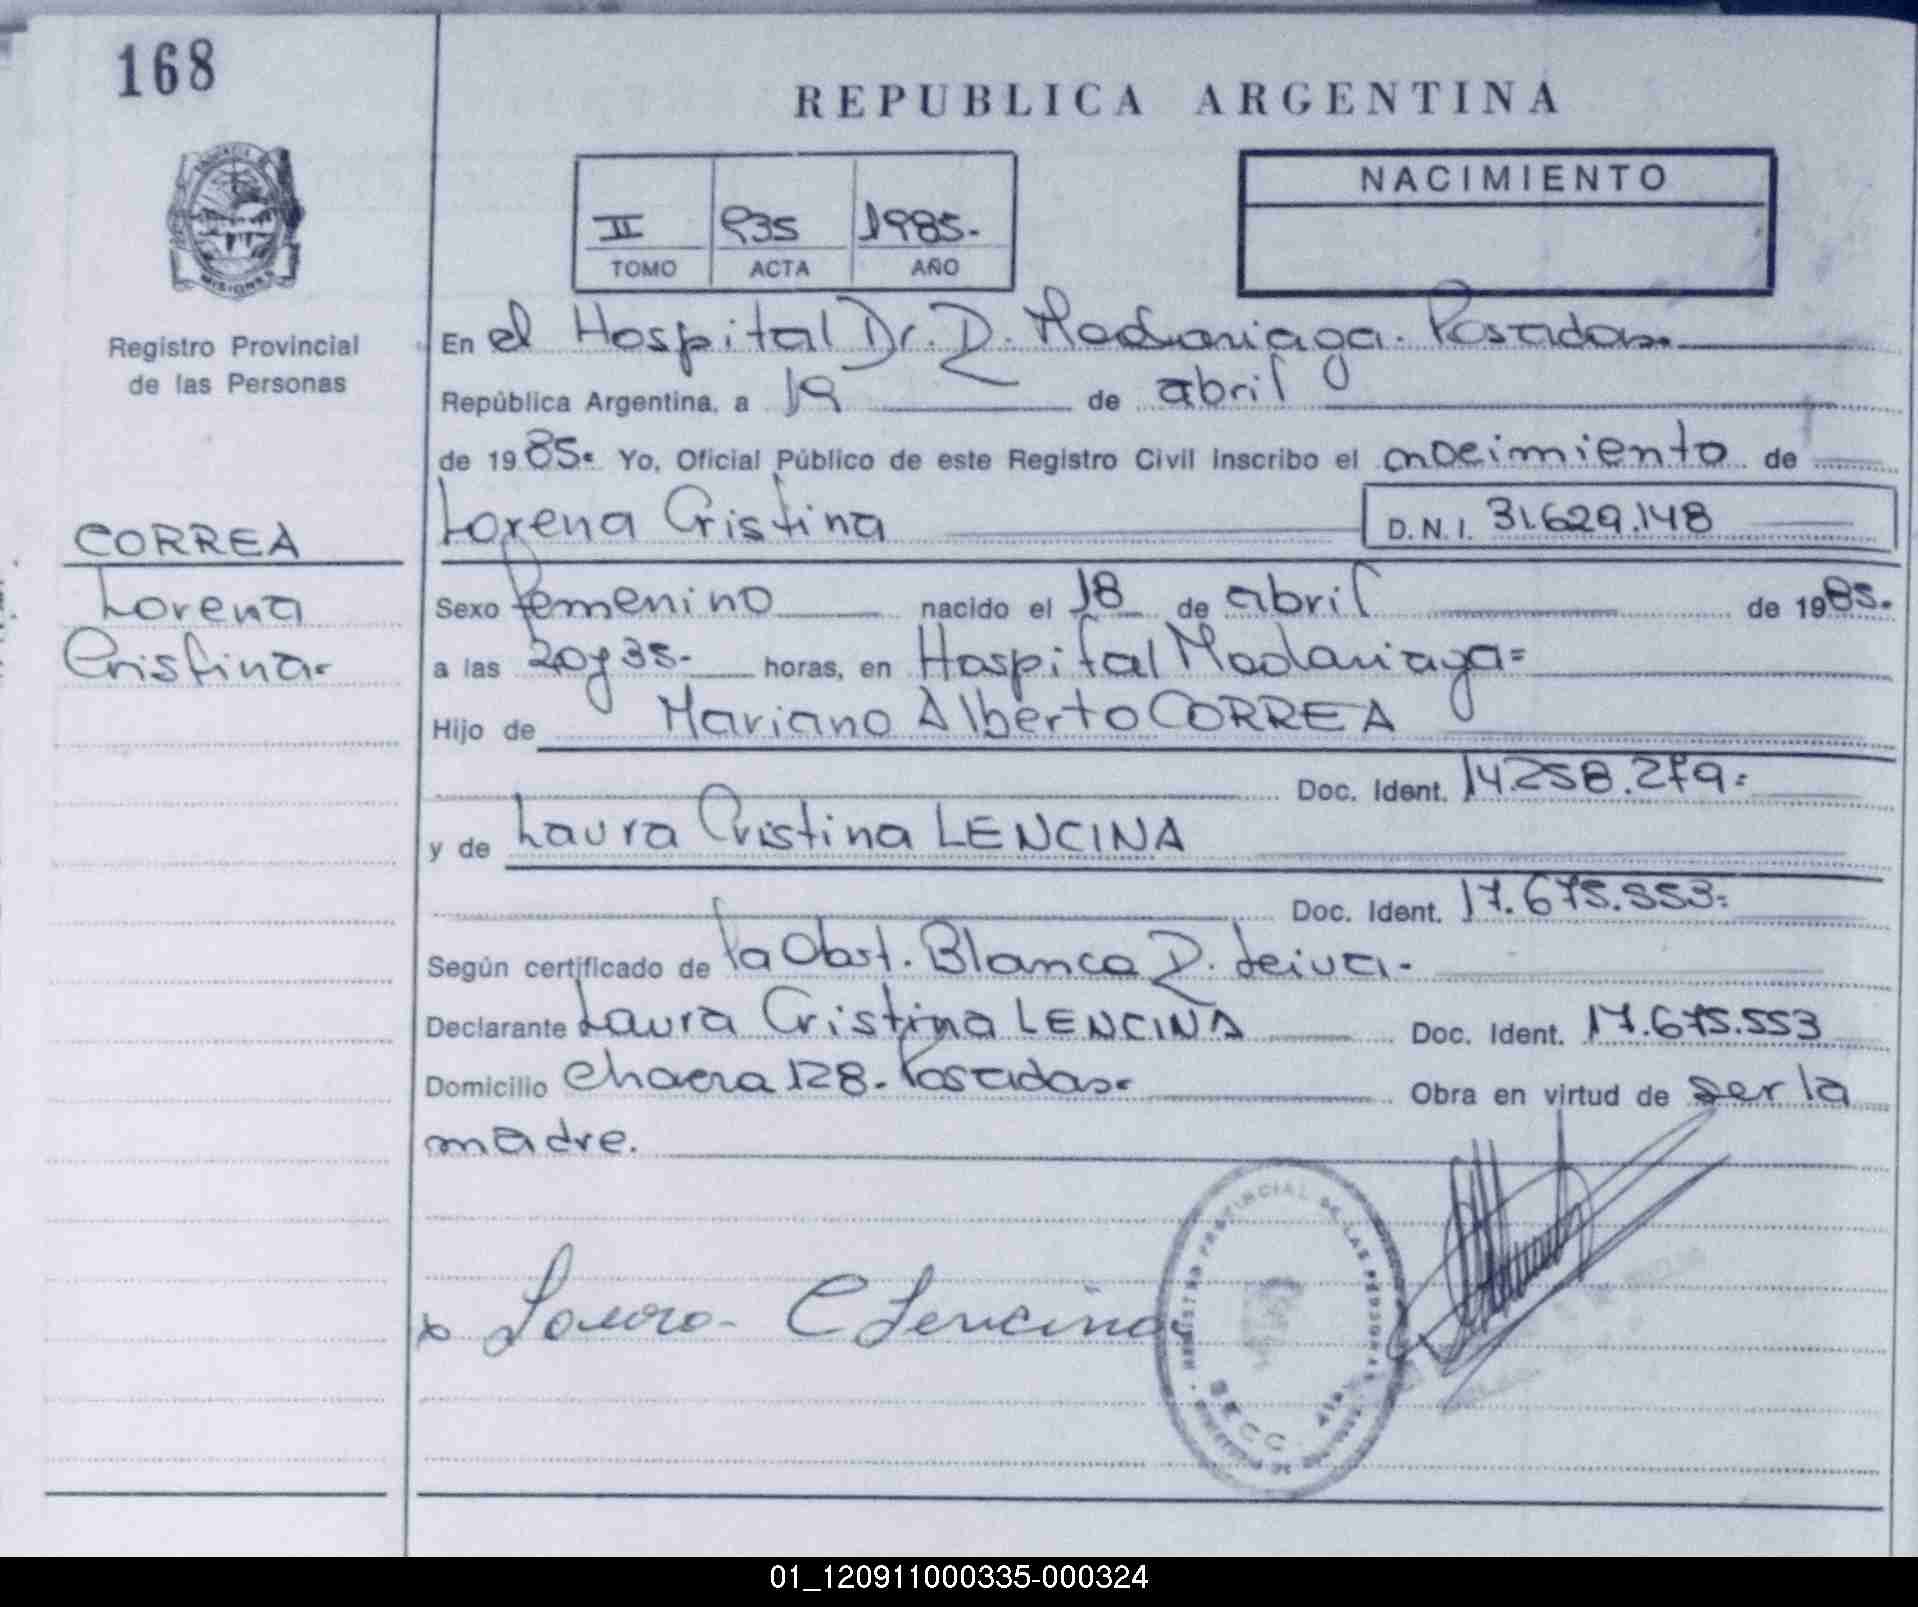 168
REPUBLICA ARGENTINA
NACIMIENTO
II 935 1985.
TOMO ACTA AÑO
MISIONES
Registro Provincial
de las Personas
En el Hospital Dr. R. Madariaga. Posadas.
República Argentina, a 19 de abril
de 1985. Yo, Oficial Público de este Registro Civil inscribo el nacimiento de
Lorena Cristina D.N.I. 31.629.148
CORREA
Lorena
Cristina.
Sexo femenino nacido el 18 de abril de 1985.
a las 20y35. horas, en Hospital Madariaga=
Hijo de Mariano Alberto CORREA
Doc. Ident. 14.258.279=
y de Laura Cristina LENCINA
Doc. Ident. 17.675.553=
Según certificado de la Obst. Blanca R. Leiva.
Declarante Laura Cristina LENCINA Doc. Ident. 17.675.553
Domicilio Chacra 128. Posadas. Obra en virtud de ser la
madre.
REGISTRO PROVINCIAL DE LAS PERSONAS
SECC. 4ta
x Laura C Lencina
01_120911000335-000324